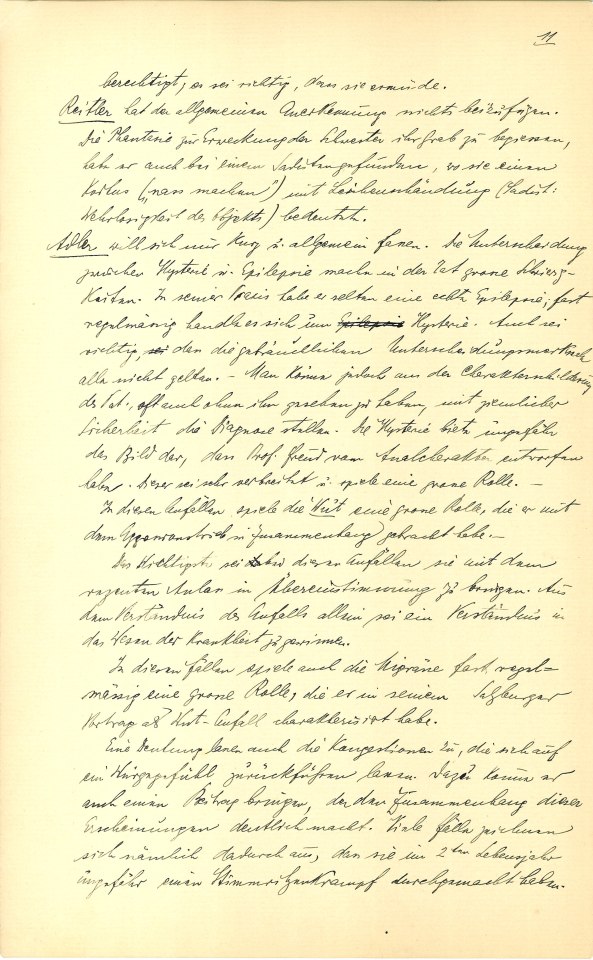 11
berechtigt, es sei richtig, dass sie ermüde.
Reitler hat der allgemeinen Anerkennung nichts beizufügen.
Die Phantasie zur Erweckung der Schwester ihr Grab zu begiessen,
habe er auch bei einem Sadisten gefunden, wo sie einen
Koitus („nass machen") mit Leichenschändung (Sadist:
Wehrlosigkeit des Objekts) bedeutete.
Adler will sich nur kurz u. allgemein fassen. Die Unterscheidung
zwischen Hysterie u. Epilepsie mache in der Tat grosse Schwierig-
keiten. In seiner Praxis habe er selten eine echte Epilepsie; fast
regelmässig handle es sich um Epilepsie Hysterie. Auch sei
richtig, sei dass die gebräuchlichen Unterscheidungsmerkmale
alle nicht gelten. – Man könne jedoch aus der Charakterschilderung
des Pat., oft auch ohne ihn gesehen zu haben, mit ziemlicher
Sicherheit die Diagnose stellen. Die Hysterie biete ungefähr
das Bild dar, dass Prof. Freud vom Analcharakter entworfen
habe. Dieser sei sehr verbreitet u. spiele eine grosse Rolle. –
In diesen Anfällen spiele die Wut eine grosse Rolle, die er mit
dem Aggressionstrieb in Zusammenhang gebracht habe. –
Das Wichtigste sei bei diesen Anfällen sie mit dem
rezenten Anlass in Übereinstimmung zu bringen. Aus
dem Verständnis des Anfalls allein sei ein Verständnis in
das Wesen der Krankheit zu gewinnen.
In diesen Fällen spiele auch die Migräne fast regel=
mässig eine grosse Rolle, die er in seinem Salzburger
Vortrag als Wut-Anfall charakterisirt habe.
Eine Deutung lassen auch die Kongestionen zu, die sich auf
ein Würgegefühl zurückführen lassen. Dazu könne er
auch einen Beitrag bringen, der den Zusammenhang dieser
Erscheinungen deutlich macht. Viele Fälle zeichnen
sich nämlich dadurch aus, dass sie im 2ten Lebensjahr
ungefähr einen Stimmritzenkrampf durchgemacht haben.